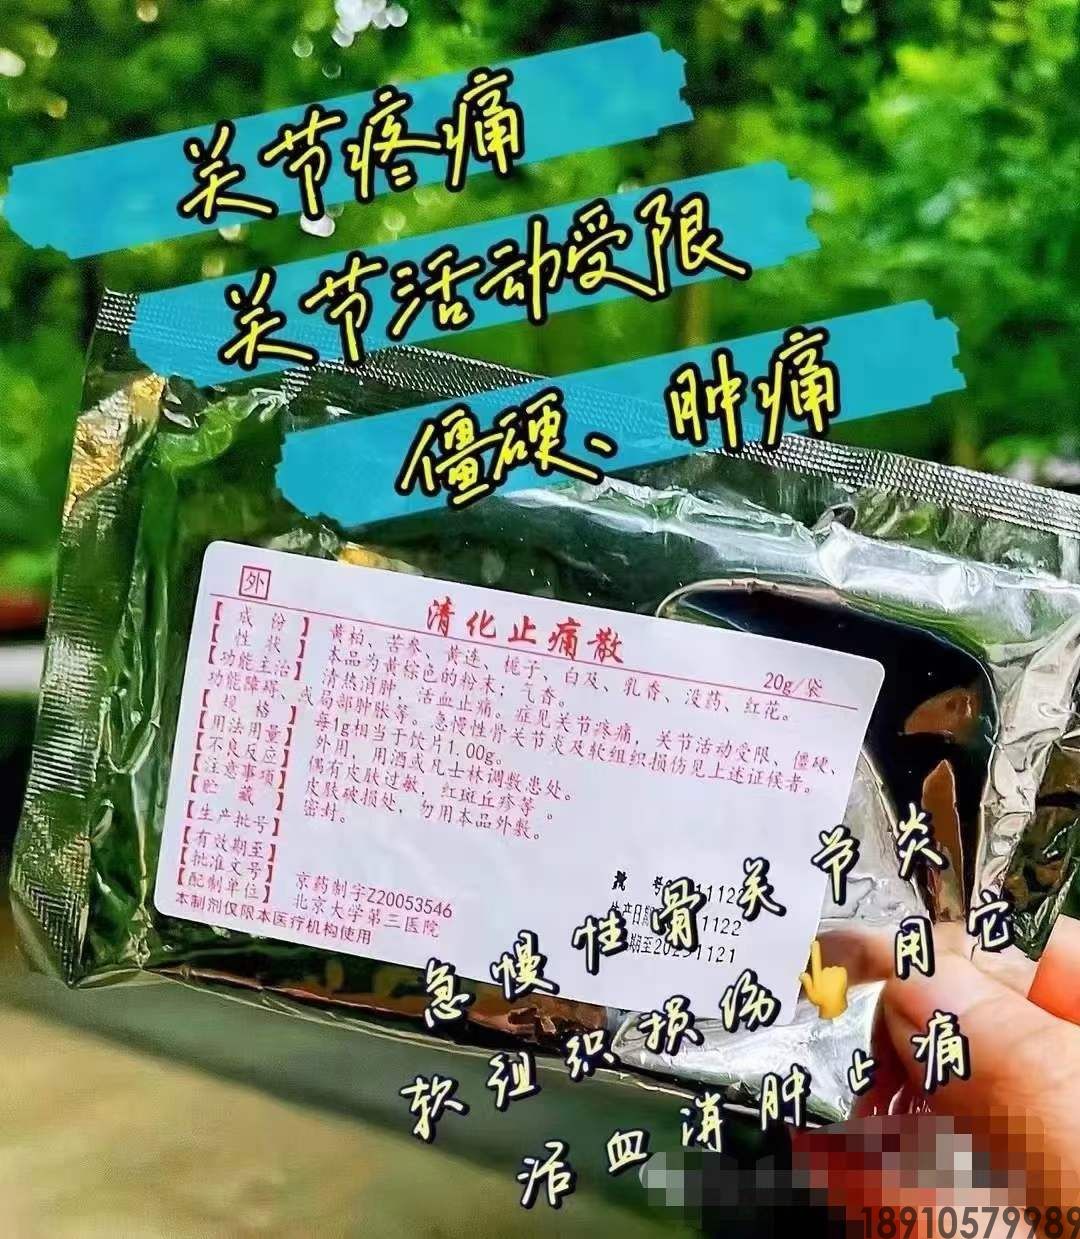 关节疼痛
关节活动受限
僵硬、肿痛
外
清化止痛散
20g/袋
【成份】黄柏、苦参、黄连、栀子、白及、乳香、没药、红花。
【性状】本品为黄棕色的粉末；气香。
【功能主治】清热消肿，活血止痛。症见关节疼痛，关节活动受限、僵硬、
功能障碍、或局部肿胀等。急慢性骨关节炎及软组织损伤见上述证候者。
【规格】每1g相当于饮片1.00g。
【用法用量】外用，用酒或凡士林调敷患处。
【不良反应】偶有皮肤过敏，红斑丘疹等。
【注意事项】皮肤破损处，勿用本品外敷。
【贮藏】密封。
【生产批号】
【有效期至】
【批准文号】京药制字Z20053546
【配制单位】北京大学第三医院
本制剂仅限本医疗机构使用
急慢性骨关节炎
软组织损伤 用它
活血消肿止痛
18910579989